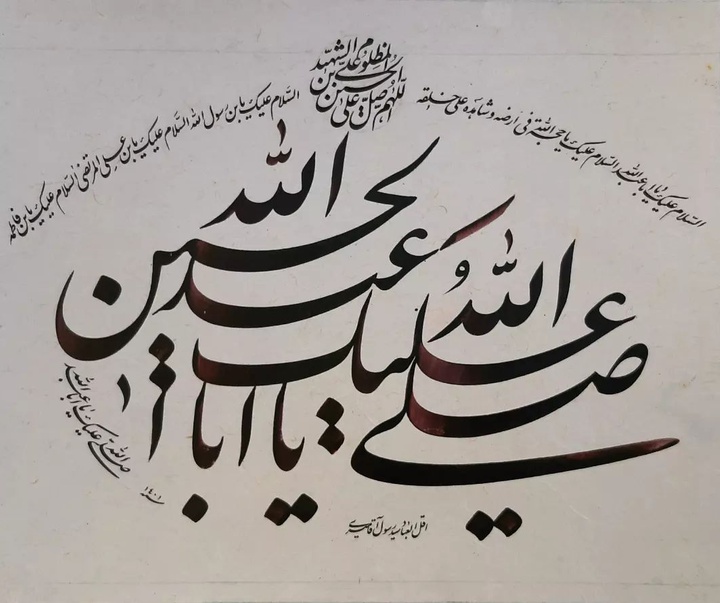 اللهم صل علی
الحسین بن علی
المظلوم الشهید
السلام علیک یا ابا عبدالله السلام علیک یا حجة الله فی ارضه و شاهده علی خلقه
السلام علیک یابن رسول الله السلام علیک یابن علی المرتضی السلام علیک یابن فاطمه
صلی الله علیک یا ابا عبدالله الحسین
صلی الله علیک یا ابا عبدالله
سنه ۱۴۰۱
اقل العباد سید رسول